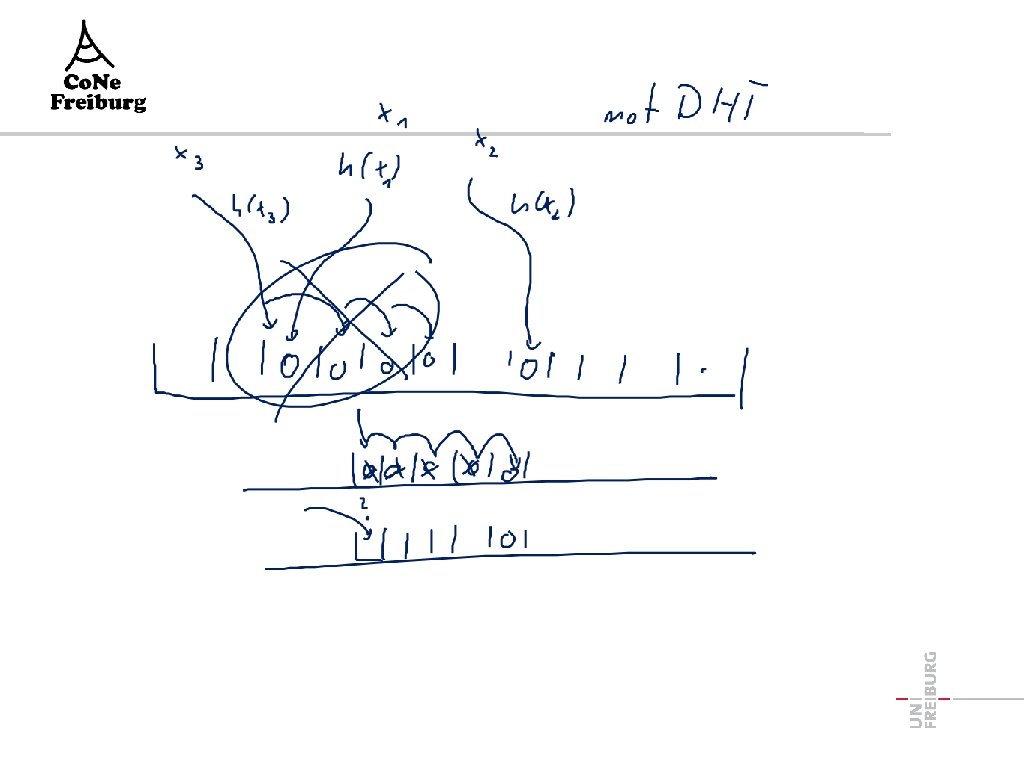 CoNe
Freiburg
not DHT
x₁
x₂
x₃
h(x₁)
h(x₃)
h(x₂)
| | | 0 | 0 | 0 | 0 | | 0 | | | | . |
?
| | | | | | 0 |
UNI
FREIBURG